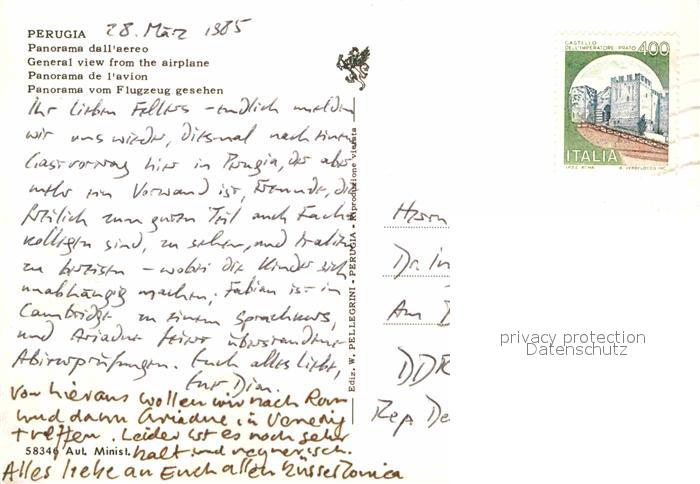 PERUGIA 28. März 1985
Panorama dall'aereo
General view from the airplane
Panorama de l'avion
Panorama vom Flugzeug gesehen
Ihr lieben – endlich melden
wir uns wieder, diesmal nach einem
Gastvortrag hier in Perugia, der aber
mehr ein Vorwand ist, Freunde, die
freilich zum guten Teil auch Fach-
kollegen sind, zu sehen, und Italien
zu bereisen – wobei die Kinder sich
unabhängig machen: Fabian ist in
Cambridge zu einem Sprachkurs,
und Ariadne feiert überstandene
Abiturprüfungen. Euch alles Liebe,
Von hieraus wollen wir nach Rom
und dann Ariadne in Venedig
treffen. Leider ist es noch sehr
kalt und regnerisch.
Alles liebe an Euch allen
58346 Aut. Minist.
Ediz. W. PELLEGRINI - PERUGIA - Riproduzione vietata
CASTELLO
DELL'IMPERATORE PRATO 400
ITALIA
Herrn
Dr. In
Am
DDR
Rep De
privacy protection
Datenschutz